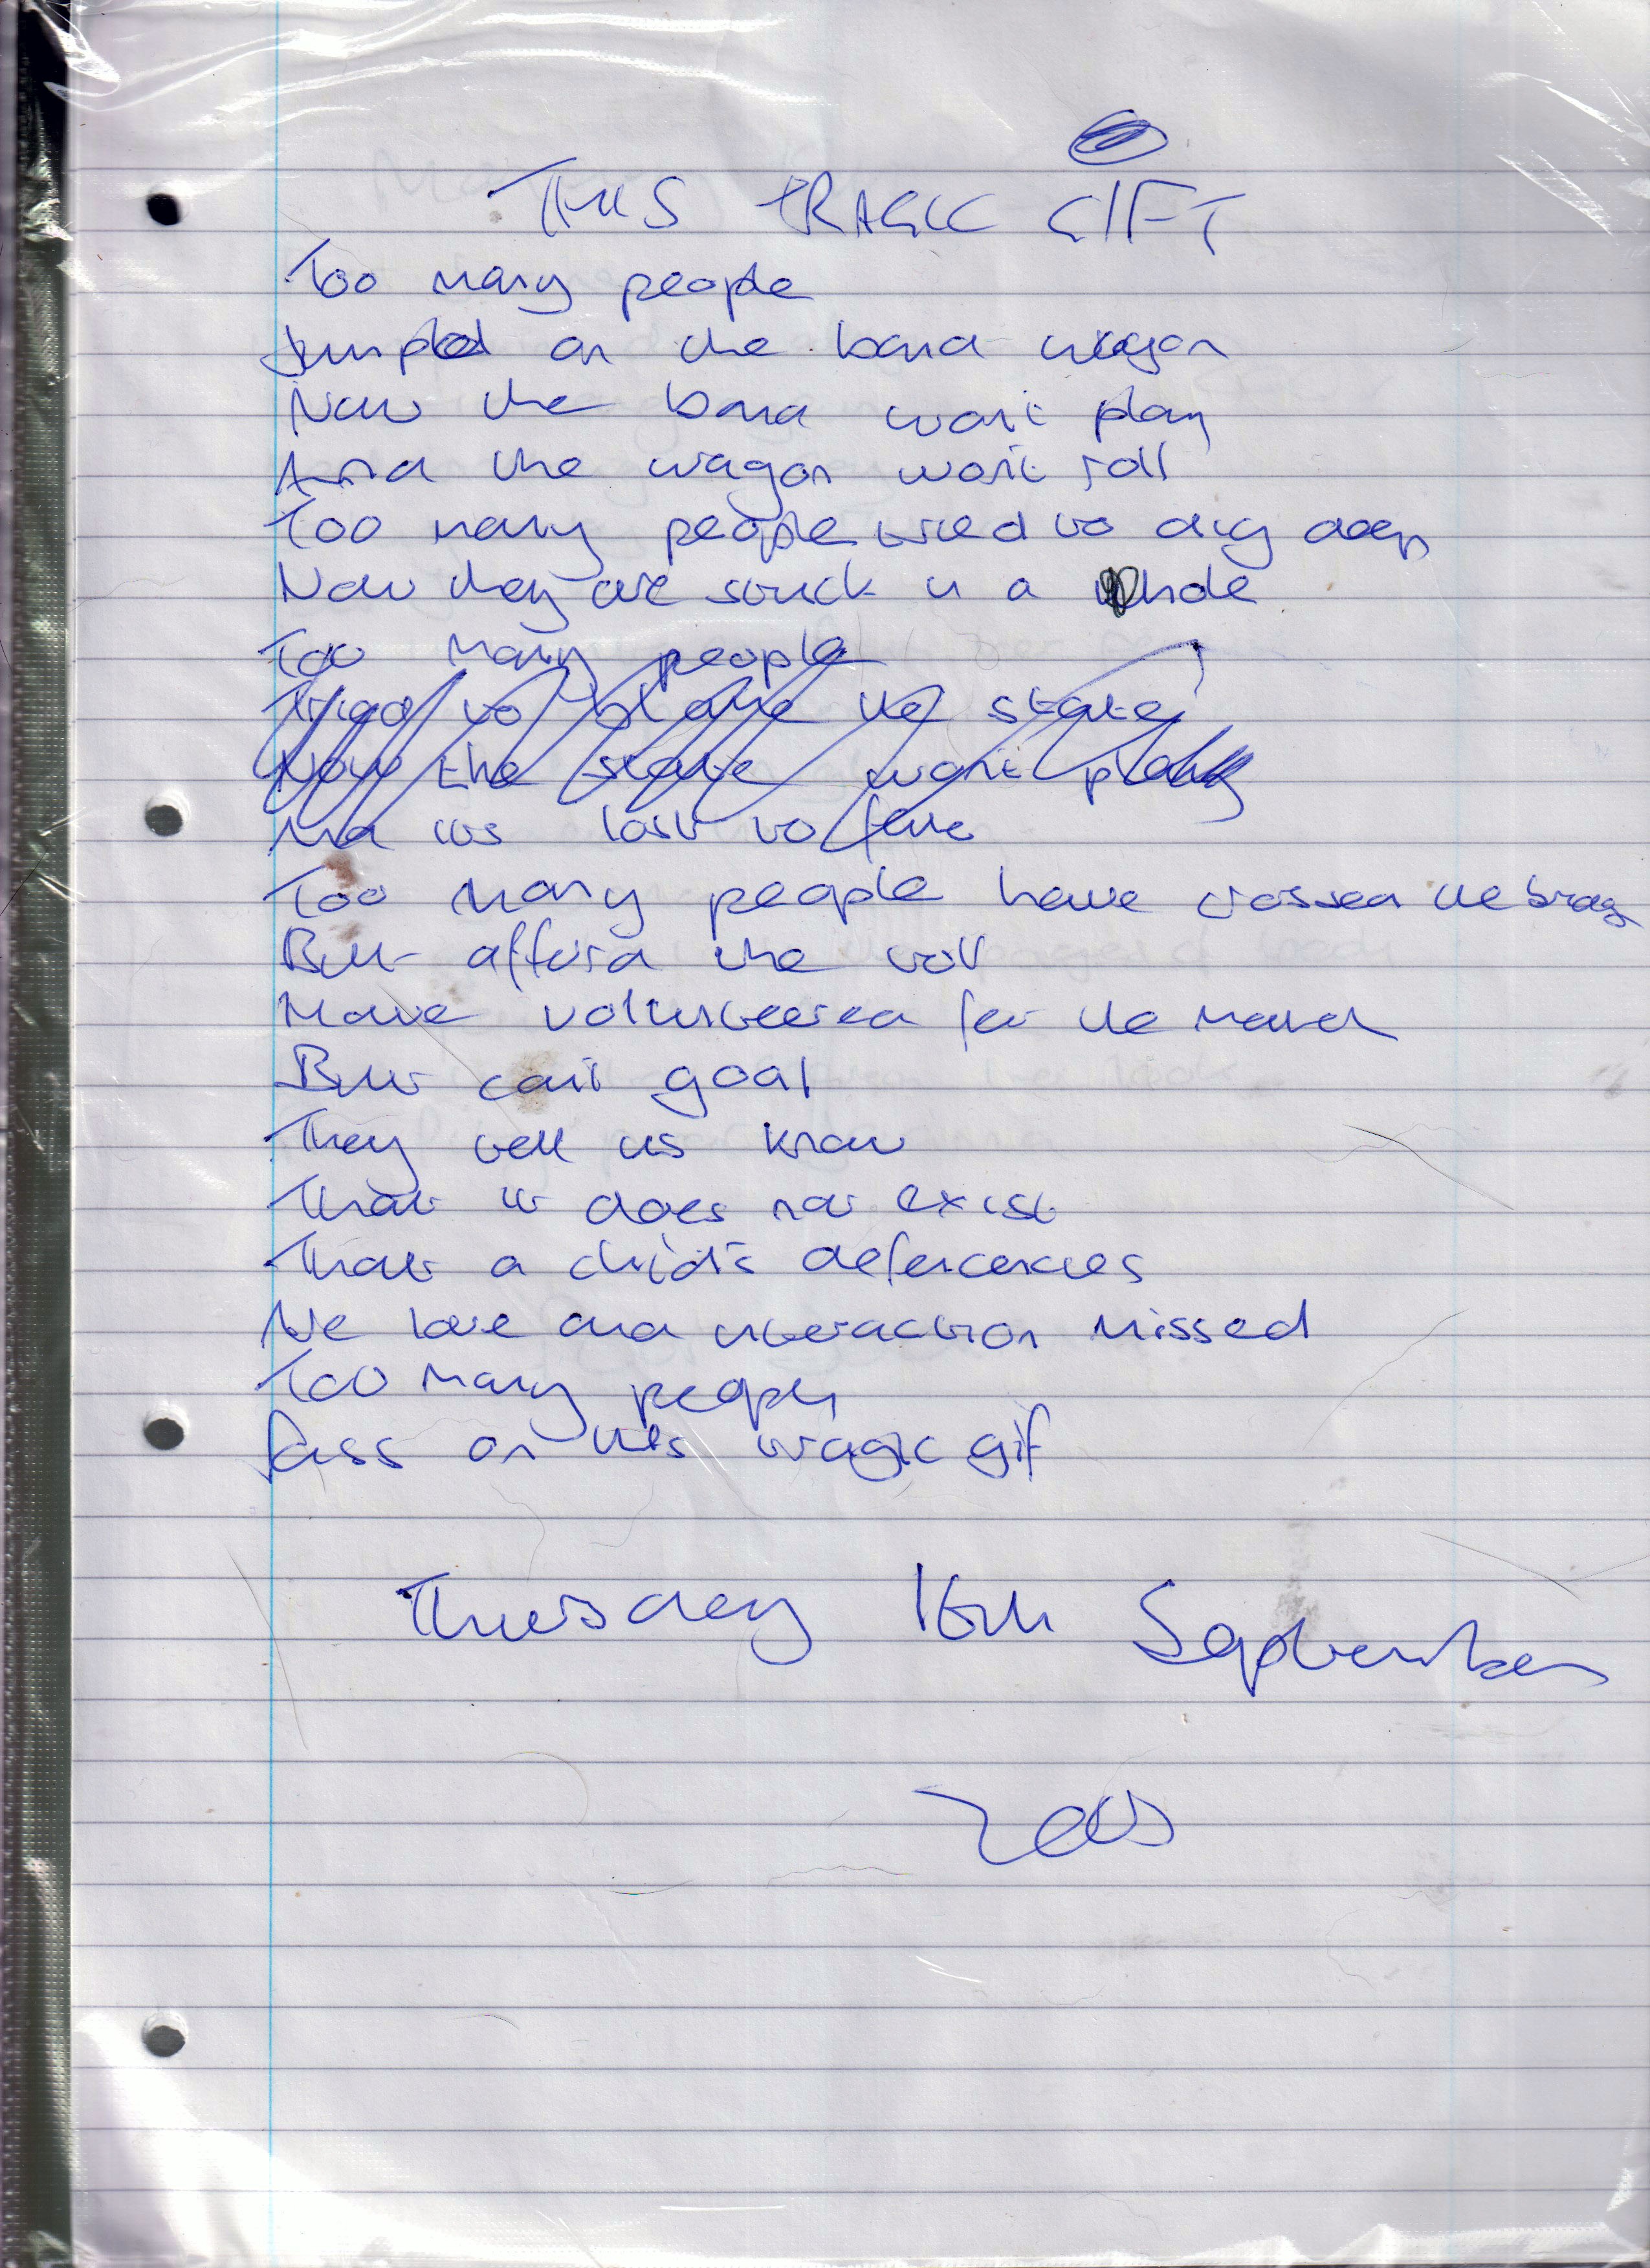 THIS TRAGIC GIFT
Too many people
Jumped on the band wagon
Now the band won't play
And the wagon won't roll
Too many people tried to dig deep
Now they are stuck in a hole
Too many people
Tried to blame the state
Now the state won't play
And its last to
Too many people have crossed the bridge
But afford the toll
Have volunteered for the march
But can't goal
They tell us know
That it does not exist
That a child's defercencies
We love and interaction missed
Too many people
Pass on this tragic gif
Thursday 16th September